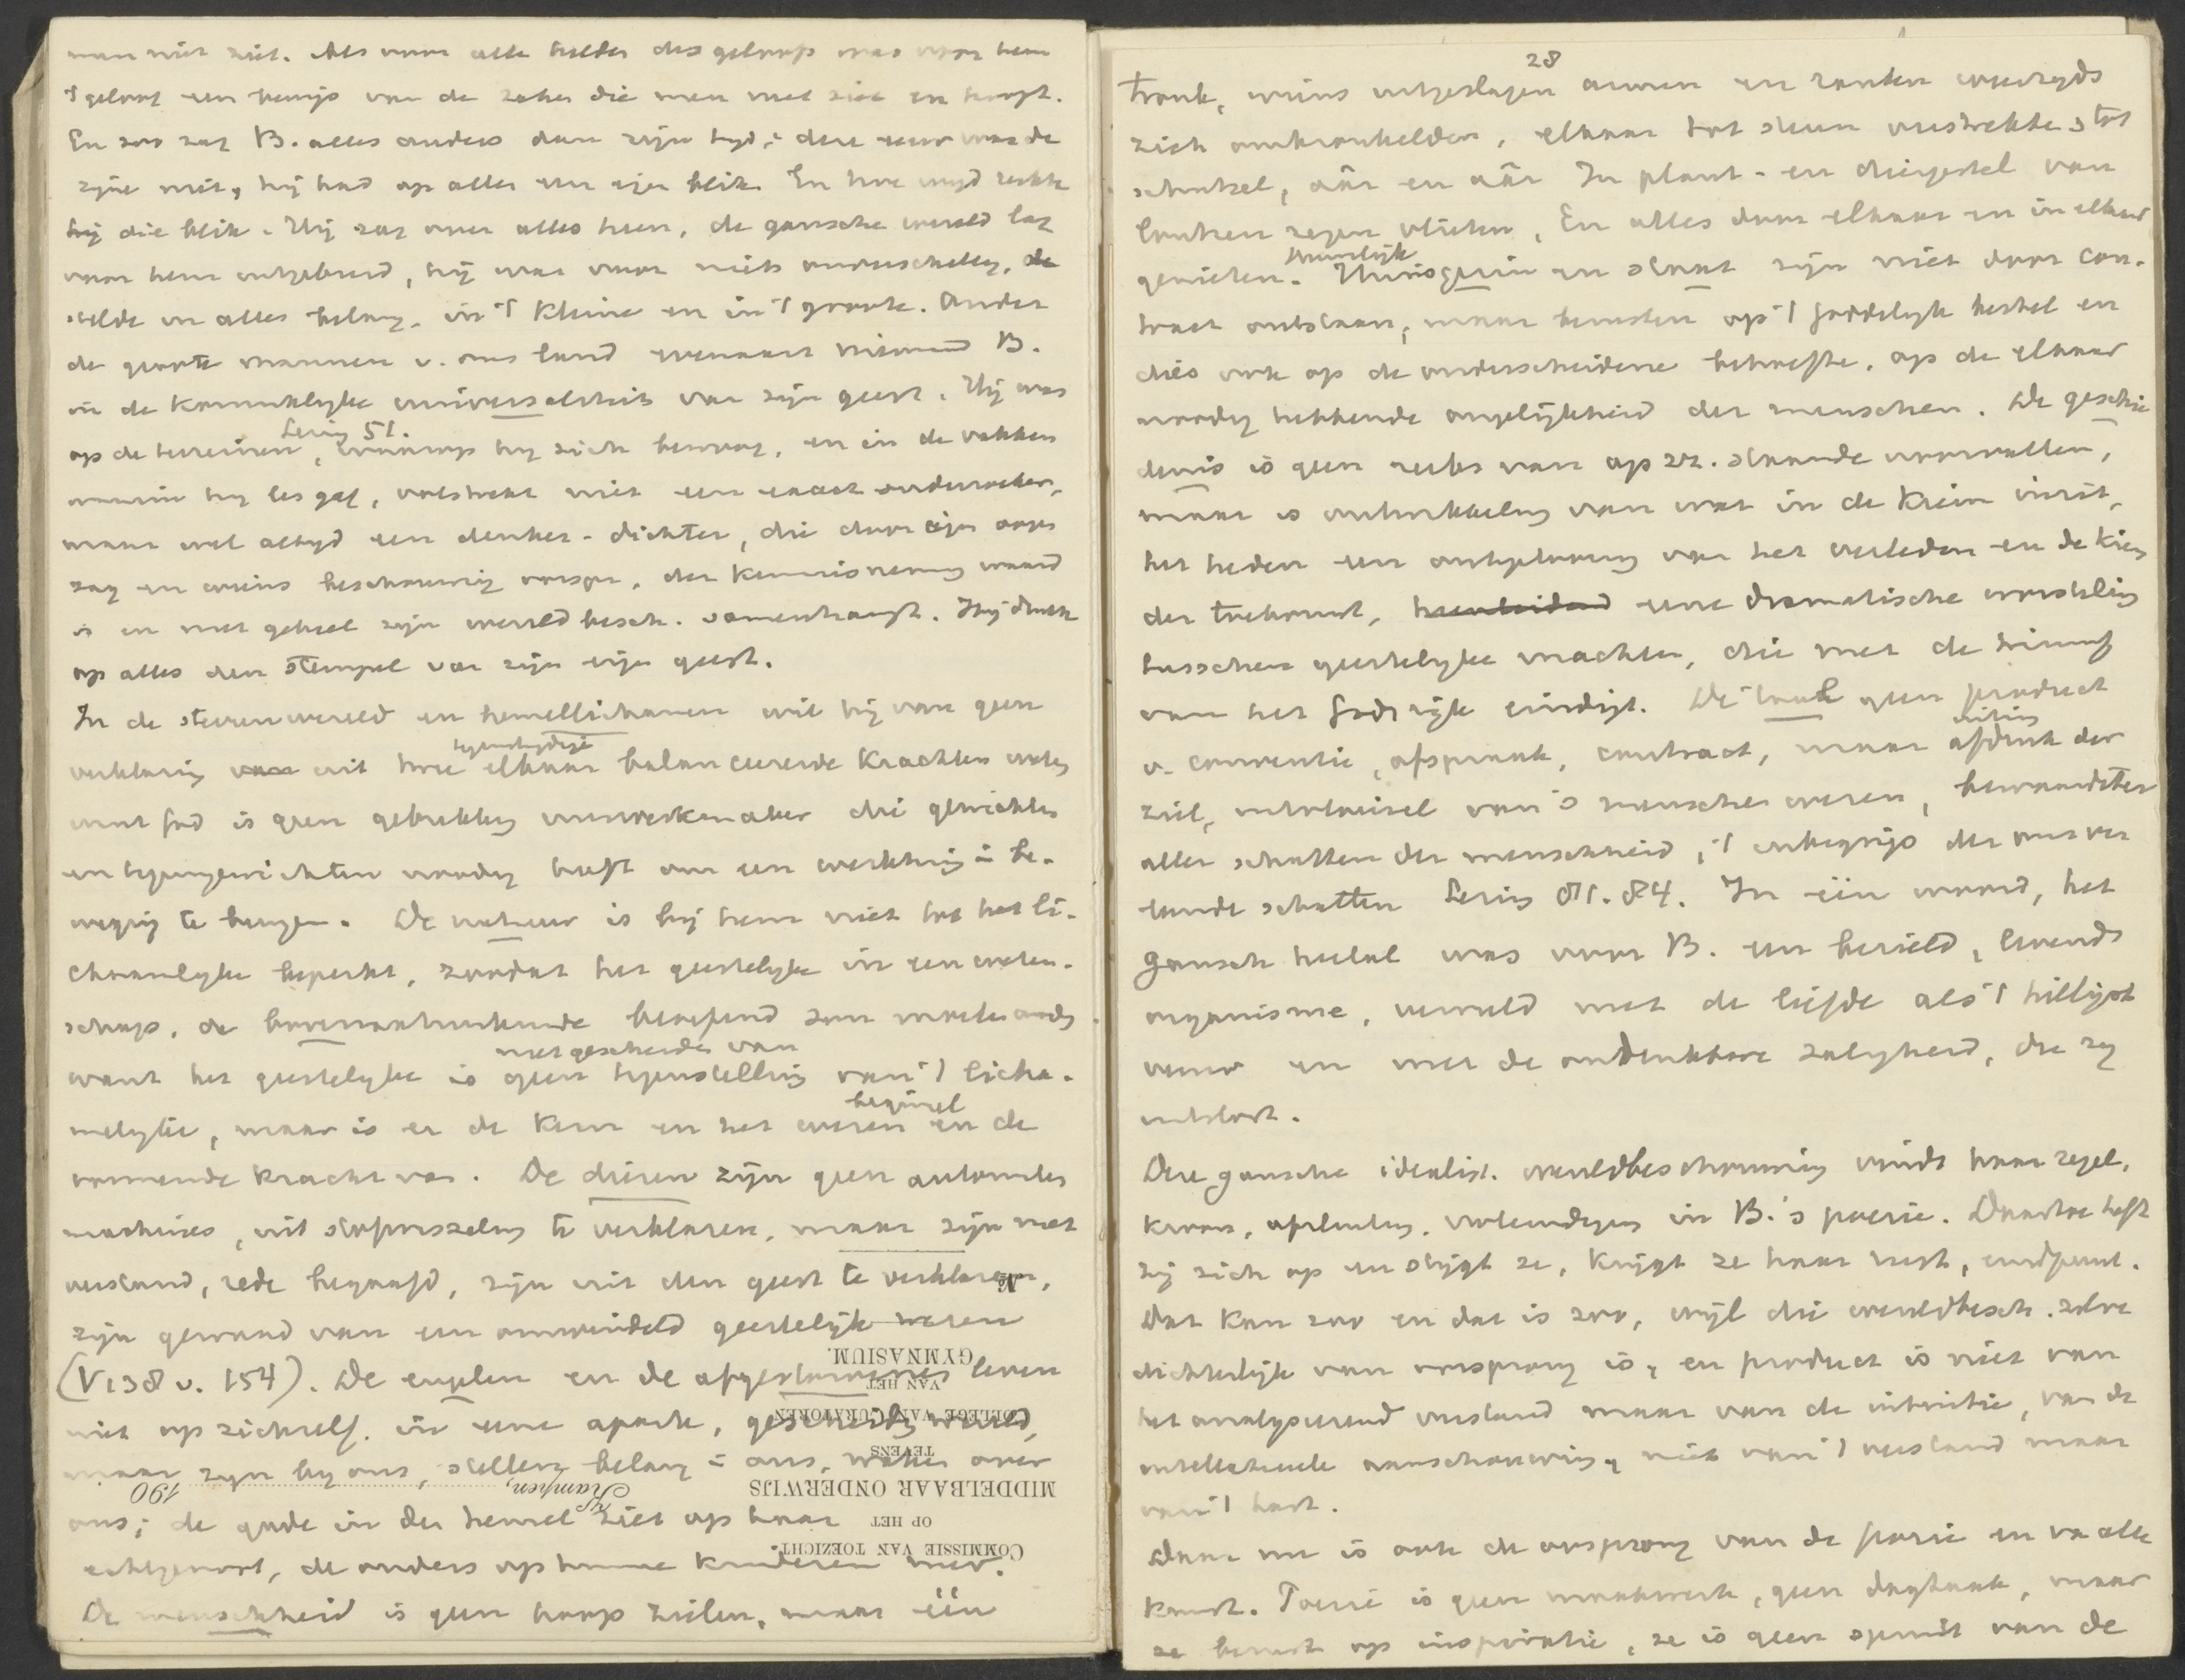 man niet ziet. Als voor alle helden des geloofs was voor hem
't geloof een bewijs van de zaken die men niet ziet en hoopt.
En zoo zag B. alles anders dan zijn tijd; deze eeuw was de
zijne niet, hij had op alles een eigen blik. En hoe wijd reikte
hij die blik. Hij zag over alles heen, de gansche wereld lag
voor hem uitgebreid, hij was voor niets onverschillig,
stelde in alles belang, in 't kleine en in 't groote. Onder
de groote mannen v. ons land evenaart niemand B.
in de koninklijke universaliteit van zijn geest. Hij was
op de terreinen, waarop hij zich bewoog, en in de vakken
Lering 51.
waarin hij les gaf, volstrekt niet een exact onderzoeker,
maar wel altijd een denker-dichter, die door eigen oogen
zag en wiens beschouwing oorspr., der kennisneming waard
is en met geheel zijn wereldbesch. samenhangt. Hij drukt
op alles den stempel van zijn eigen geest.
In de sterrenwereld en hemellichamen wil hij van geen
verklaring van uit twee elkaar balanceerende krachten weten
tegenstrijdige
want God is geen gebrekkig uurwerkmaker die gewichten
en tegengewichten noodig heeft om een werktuig in be-
weging te brengen. De natuur is bij hem niet tot het li-
chamelijke beperkt, zoodat het geestelijke in een weten-
schap, de bovennatuurkunde beoefend zou moeten worden
want het geestelijke is geen tegenstelling van 't licha-
niet gescheiden van
melijke, maar is er de kern en het wezen en de
beginsel
vormende kracht van. De dieren zijn geen automaten
machines, uit stofwisseling te verklaren, maar zijn met
verstand, rede begaafd, zijn uit den geest te verklaren,
zijn gewaad van een omwindeld geestelijk wezen
(V 138 v. 154). De engelen en de afgestorvenen leven
niet op zichzelf in eene aparte, gescheiden wereld,
maar zijn bij ons, stellen belang in ons, waken over
ons; de gade in den hemel ziet op haar
echtgenoot, de ouders op hunne kinderen neer.
De menschheid is geen hoop zielen, maar één
No.
COMMISSIE VAN TOEZICHT
OP HET
MIDDELBAAR ONDERWIJS
TEVENS
COLLEGE VAN CURATOREN
VAN HET
GYMNASIUM.
Kampen, 190
28
tronk, wiens uitgeslagen armen en ranken wederzijds
zich omkronkelden, elkaar tot steun verstrekten, tot
schutsel, aâr en aâr In plant- en diergestel van
louteren zegen vlieten, En alles door elkaar en in elkaar
genieten. Huisgezin en staat zijn niet door con-
Huwelijk
tract ontstaan, maar berusten op 't goddelijk bestel en
dies ook op de onderscheidene behoefte, op de elkaar
noodig hebbende ongelijkheid der menschen. De geschie-
denis is geen reeks van op zz. staande voorvallen,
maar is ontwikkeling van wat in de kiem inzit,
het heden een ontplooiing van het verleden en de kiem
der toekomst, eene dramatische worsteling
tusschen geestelijke machten, die met de triumf
van het Godsrijk eindigt. De taal geen product
v. conventie, afspraak, contract, maar afdruk der
uiting
ziel, uitvloeisel van 's menschen wezen, bewaarster
aller schatten der menschheid, 't inbegrip der
schatten Lering 81. 84. In één woord, het
gansch heelal was voor B. een bezield, levend
organisme, vervuld met de liefde als 't heiligst
vuur en met de ondenkbare zaligheid, die zij
ontsloot.
Deze gansche idealist. wereldbeschouwing vindt haar zegel,
kroon, afsluiting, voleindiging in B.'s poezie. Daartoe heft
zij zich op en stijgt ze, krijgt ze haar rust, eindpunt.
Dat kan zoo en dat is zoo, wijl die wereldbesch. zelve
dichterlijk van oorsprong is, en product is niet van
het analyseerend verstand maar van de intuitie, van de
intellectueele aanschouwing, niet van 't verstand maar
van 't hart.
Daar nu is ook de oorsprong van de poezie en van alle
kunst. Poezie is geen maakwerk, geen dagtaak, maar
ze berust op inspiratie, ze is geen van de